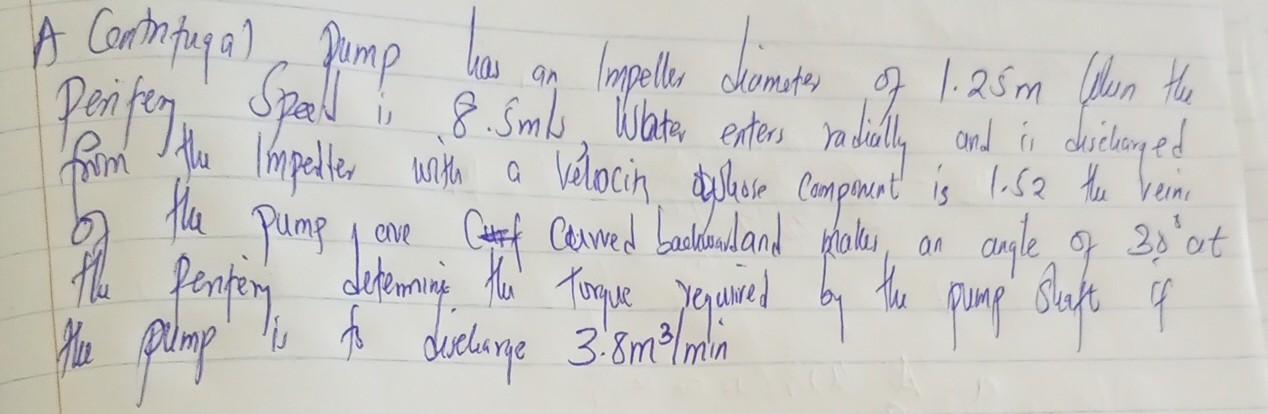 A Centrifugal Pump has an Impeller diameter of 1.25m when the
Perifery Speed is 8.5m/s, Water enters radially and is discharged
from the Impeller with a velocity whose component is 1.52 the veins
of the pump are Curved backward and makes an angle of 30° at
the Perifery determine the Torque required by the pump Shaft if
the pump is to discharge 3.8m³/min